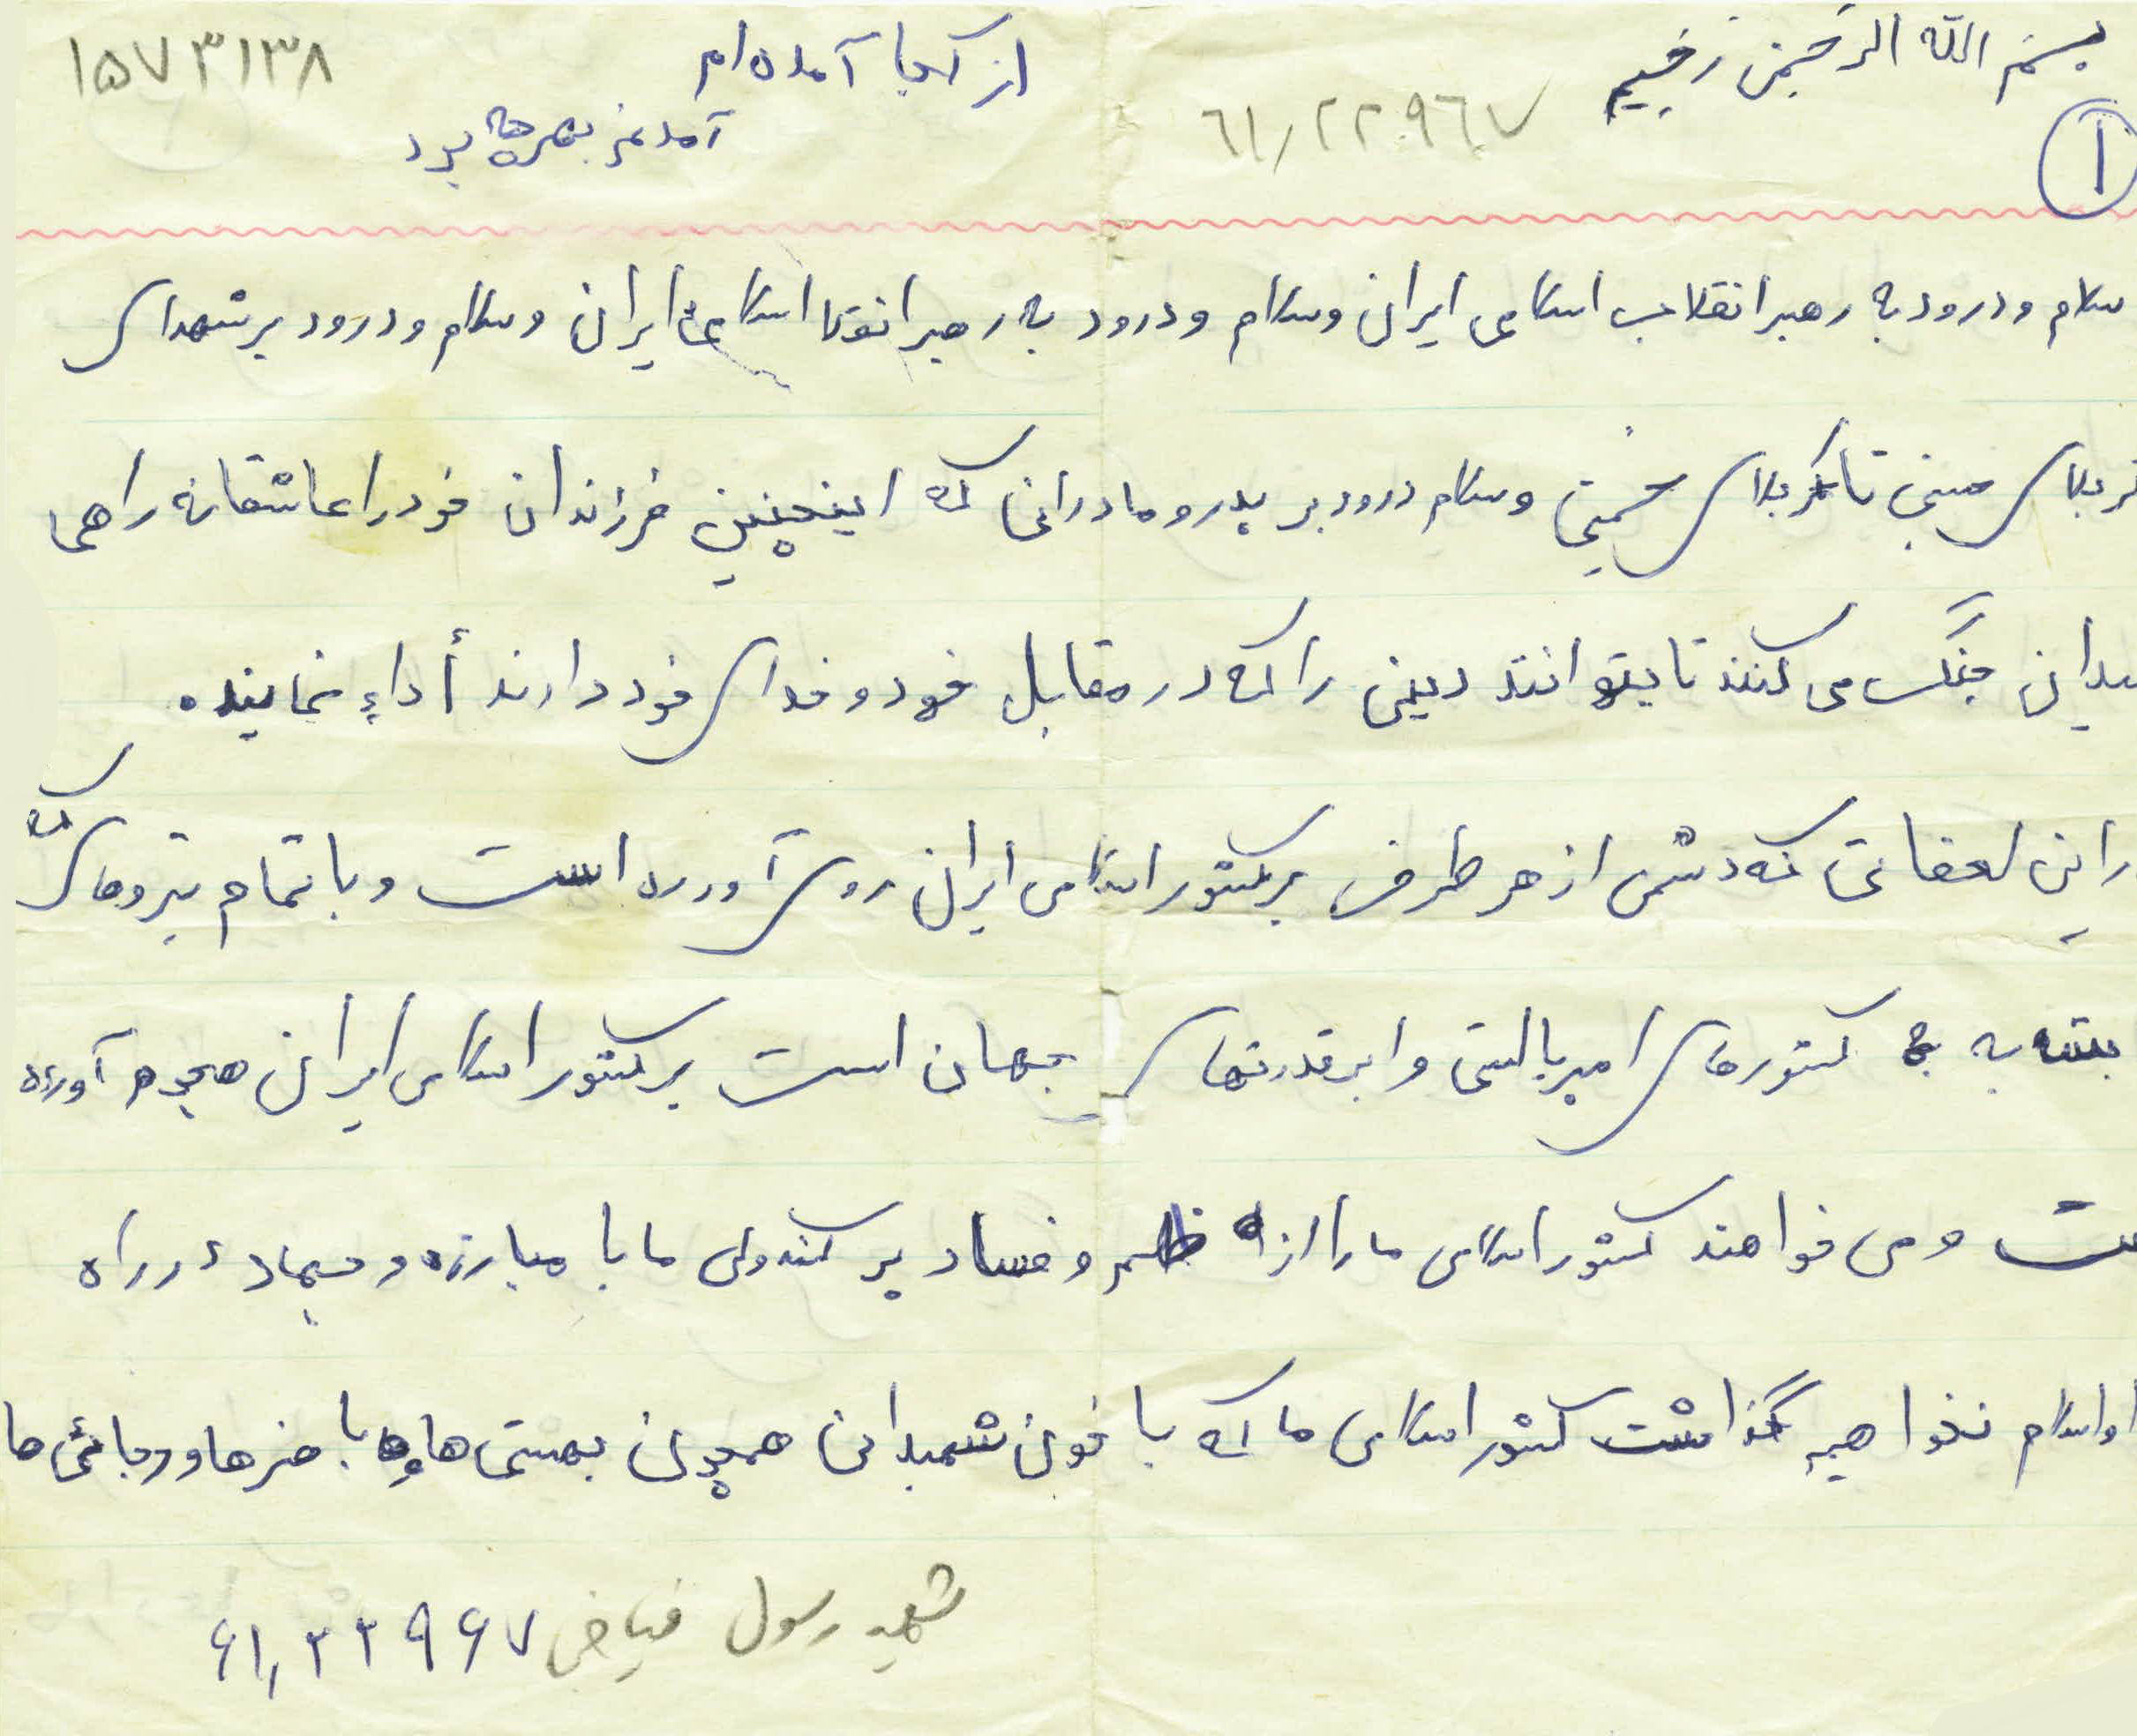 بسم الله الرحمن رحیم
۶۱/۲۲۹۶۷
از کجا آمده‌ام
۱۵۷۳۱۳۸
آمدنم بهر چه بود
۱
سلام و درود به رهبر انقلاب اسلامی ایران و سلام و درود به رهبر انقلا اسلامی ایران و سلام و درود بر شهدای
کربلای حسینی تا کربلای خمینی و سلام درود بر پدر و مادرانی که اینچنین فرزندان خود را عاشقانه راهی
میدان جنگ می کنند تا بتوانند دینی را که در مقابل خود و خدای خود دارند أداء نمایند.
در این لحظاتی که دشمن از هر طرف بر کشور اسلامی ایران روی آورده است و با تمام نیروهای که
به کشورهای امپریالستی و ابرقدرتهای جهان است بر کشور اسلامی ایران هجوم آورده
است و می خواهند کشور اسلامی ما را از ظلم و فساد پر کنند ولی ما با مبارزه و جهاد در راه
او اسلام نخواهیم گذاشت کشور اسلامی ما که با خون شهیدانی همچون بهشتی ها و با هنرها و رجائی ها
شهید رسول فیاضی ۶۱٫۲۲۹۶۷